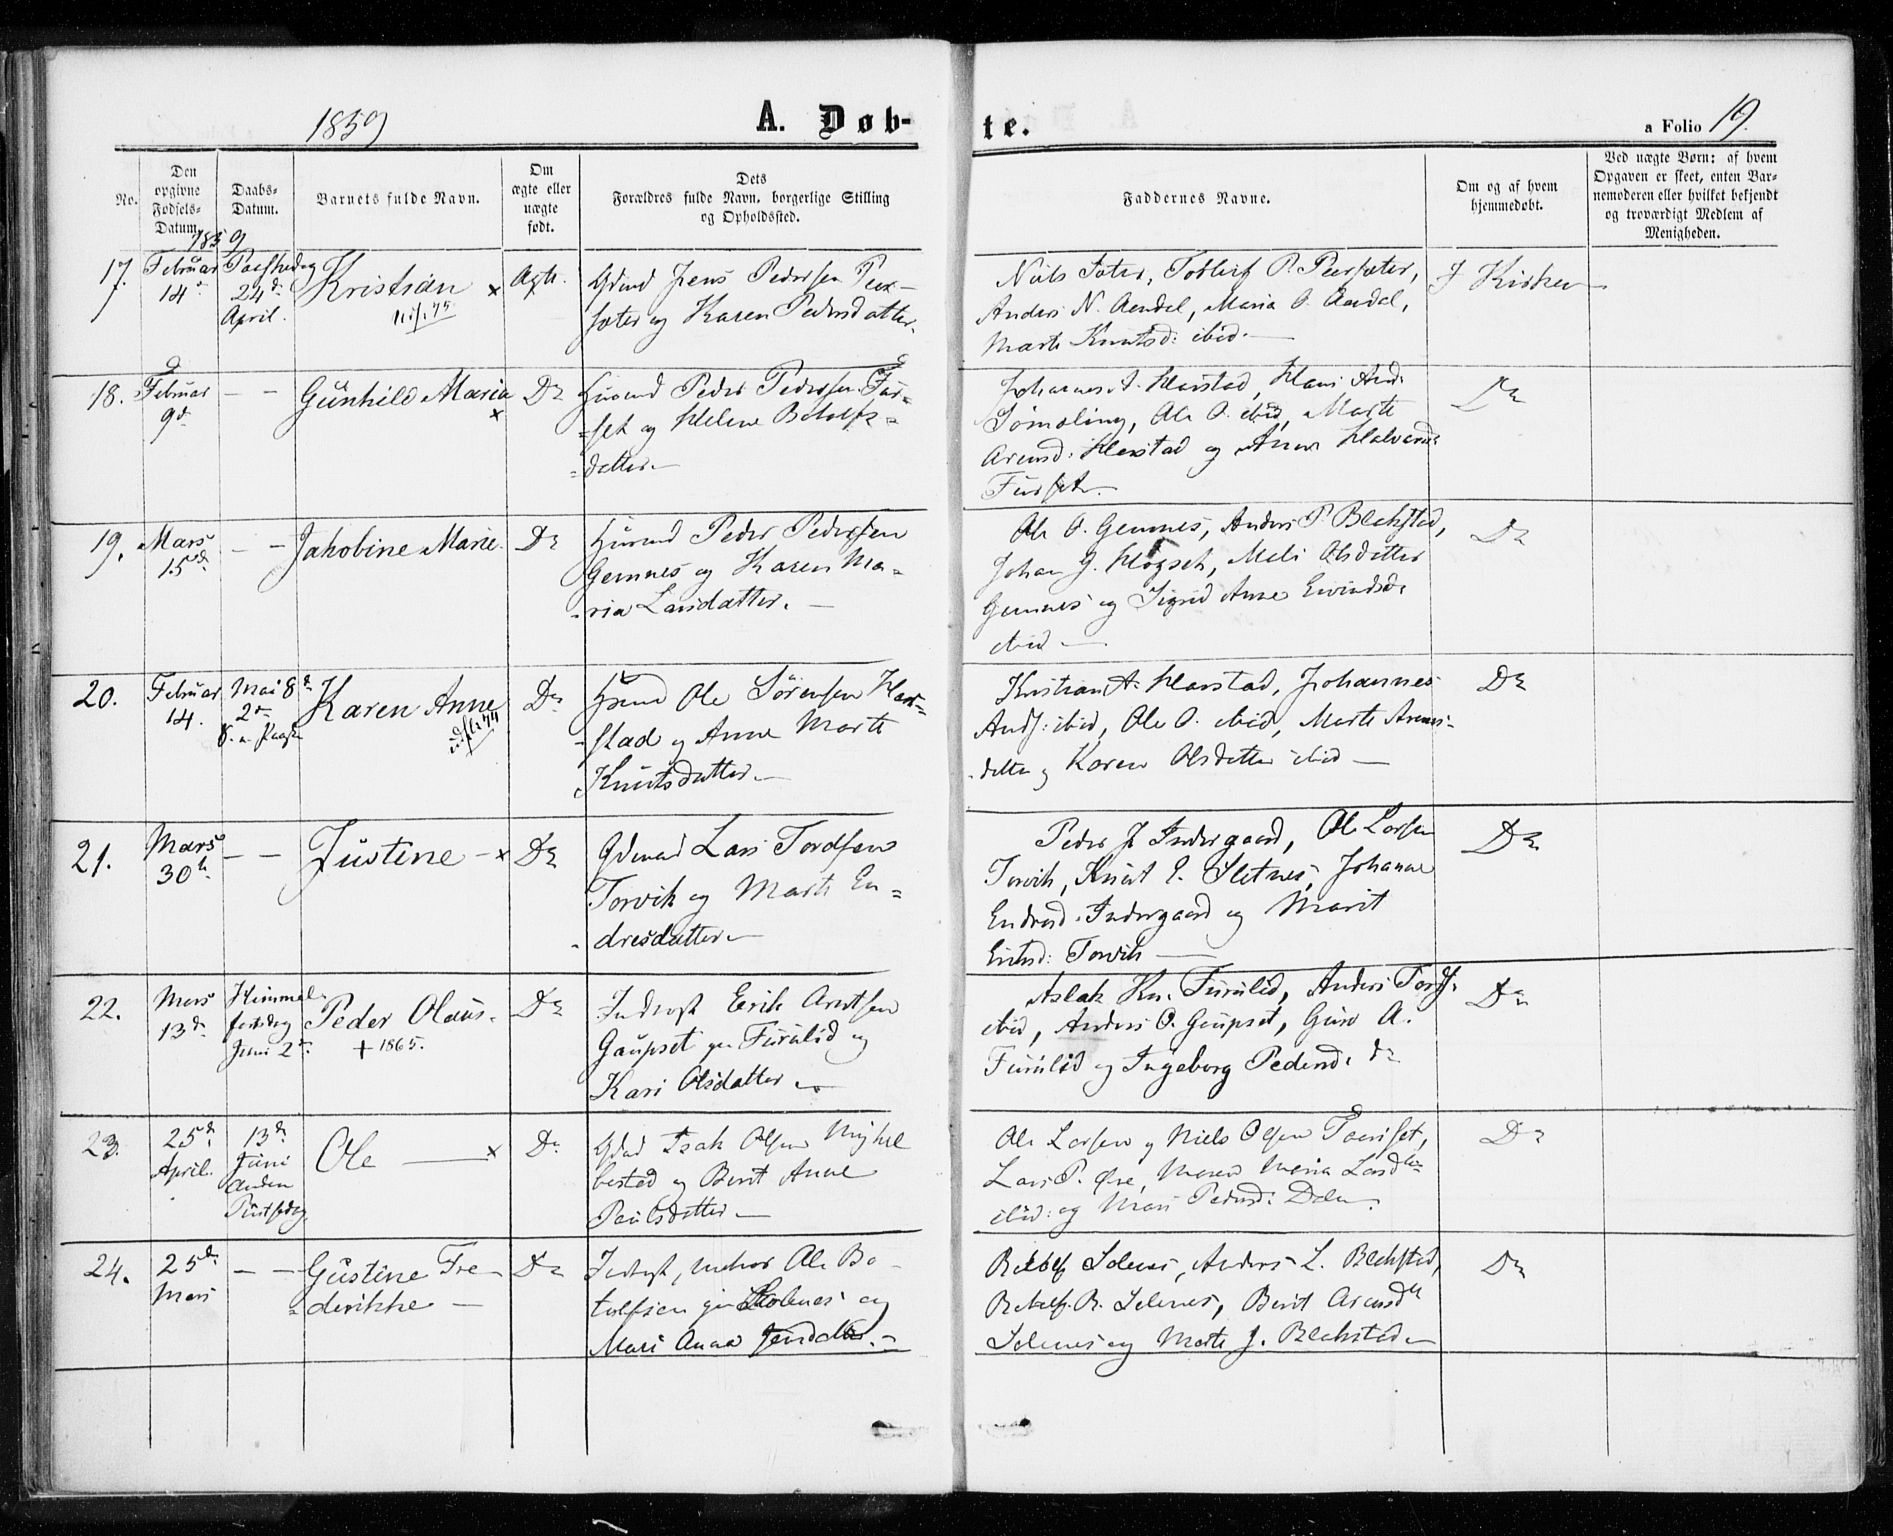 1859
A. Døb-
te.
a Folio 19.
No.
Den opgivne Fødsels-Datum.
Daabs-Datum.
Barnets fulde Navn.
Om ægte eller uægte født.
Dets
Forældres fulde Navn, borgerlige Stilling
og Opholdssted.
Faddernes Navne.
Om og af hvem
hjemmedøbt.
Ved uægte Børn: af hvem
Opgaven er skeet, enten Bar-
nemoderen eller hvilket bekjendt
og troværdigt Medlem af
Menigheden.
1859
17.
Februar
14d
Paaskedag
24d
April.
Kristian x
Ægte.
Gdmd Jens Pedersen Peer-
sæter og Karen Pedersdatter.
Niels Sæter, P. Peersæter,
Anders N. Aandal, Maria O. Aandal,
Marte Knutsd: ibid.
I Kirken
18.
Februar
9d
- -
Gunhild Maria
x
Do
Husmd Peder Pedersen Fur-
=set og Helene Botolfs=
=datter
Johannes A. Harstad, Hans And.
Sømoling, Ole O. ibid, Marte
Arensd: Harstad og Anne Halvorsd:
Furset.
Do
19.
Mars
15d.
- -
Jakobine Marie.
Do
Husmd Peder Pedersen
Gemnes og Karen Ma=
-ria Larsdatter.
Ole O. Gemnes, Anders P. Blekstad,
Johan G. Høgset, Meli Olsdatter
Gemnes og Sigrid Anne Eivindsd.
ibid
Do
20.
Februar
14.
Mai 8d
2d
S. e. Paaske
Karen Anne
Do
Husmd Ole Sørensen Har=
-stad og Anne Marte
Knutsdatter
Kristian A. Harstad, Johannes
And: ibid, Ole O. ibid, Marte Arens-
-datter og Karen Olsdatter ibid
Do
21.
Mars
30te
- -
Justine - x
Do
Gdmand Lars Tordsen
Torvik og Marte En=
-dresdatter
Peder J. Indergaard, Ole Larsen
Torvik, Knut E. Sletnes, Johanne
Endresd. Indergaard og Marit
Torvik
Do
22.
Mars
13d
Himmel-
fartsdag
Juni 2d.
Peder Olaus.
+ 1865.
Do
Inderst Erik Arntsen
Gaupset pr Furulid og
Kari Olsdatter
Aslak Kn. Furulid, Anders Tords:
ibid, Anders O. Gaupset, Guro A.
Furulid og Ingeborg Pedersd. do
Do
23.
25d
April.
13d
Juni
Anden
Pintsedag
Ole x
Do
Gdmd Isak Olsen Myhle
bostad og Berit Anne
Paulsdatter
Ole Larsen og Niels Olsen
Lars P. Øre, Maren Maria Larsdtr
ibid: og Mari Pedersd: Dalen.
Do
24.
25d
Mars
- -
Gustine Fre-
=derikke
Do
Inderst, Ole Bo-
tolfsen pr Solenes og
Mari Anna Jensdatter.
Botolf Solenes, Anders L. Blekstad,
Botolf. B. Solenes, Berit Arensdtr
Solenes og Marte J. Blekstad
Do